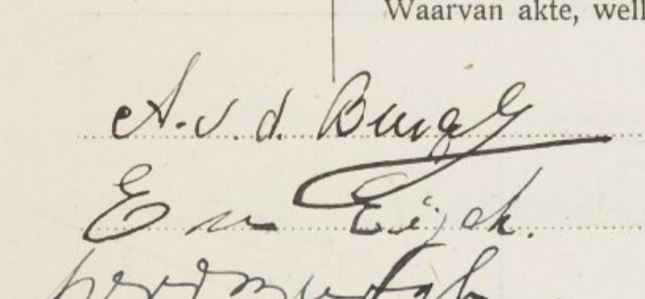 Waarvan akte, well
A. v. d. Burg
E v Eijck.